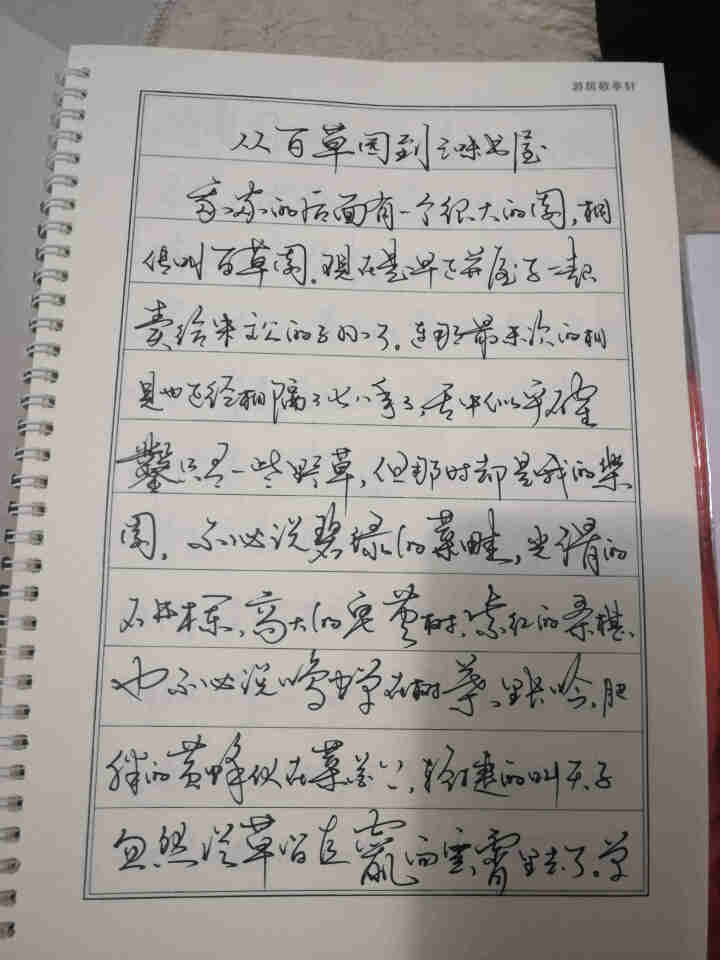 从百草园到三味书屋
家的后面有一个很大的园,相
传叫百草园。现在是早已并屋子一起
卖给朱文公的子孙了。连那最末次的相
见也已经相隔了七八年了,其中似乎确
鑿只有一些野草,但那时却是我的樂
园。不必说碧绿的菜畦,光滑的
石井栏,高大的皂荚树,紫红的桑椹、
也不必说鸣蝉在树葉里长吟,肥
胖的黄蜂伏在菜花上,轻捷的叫天子
忽然从草间直竄向雲霄里去了。单